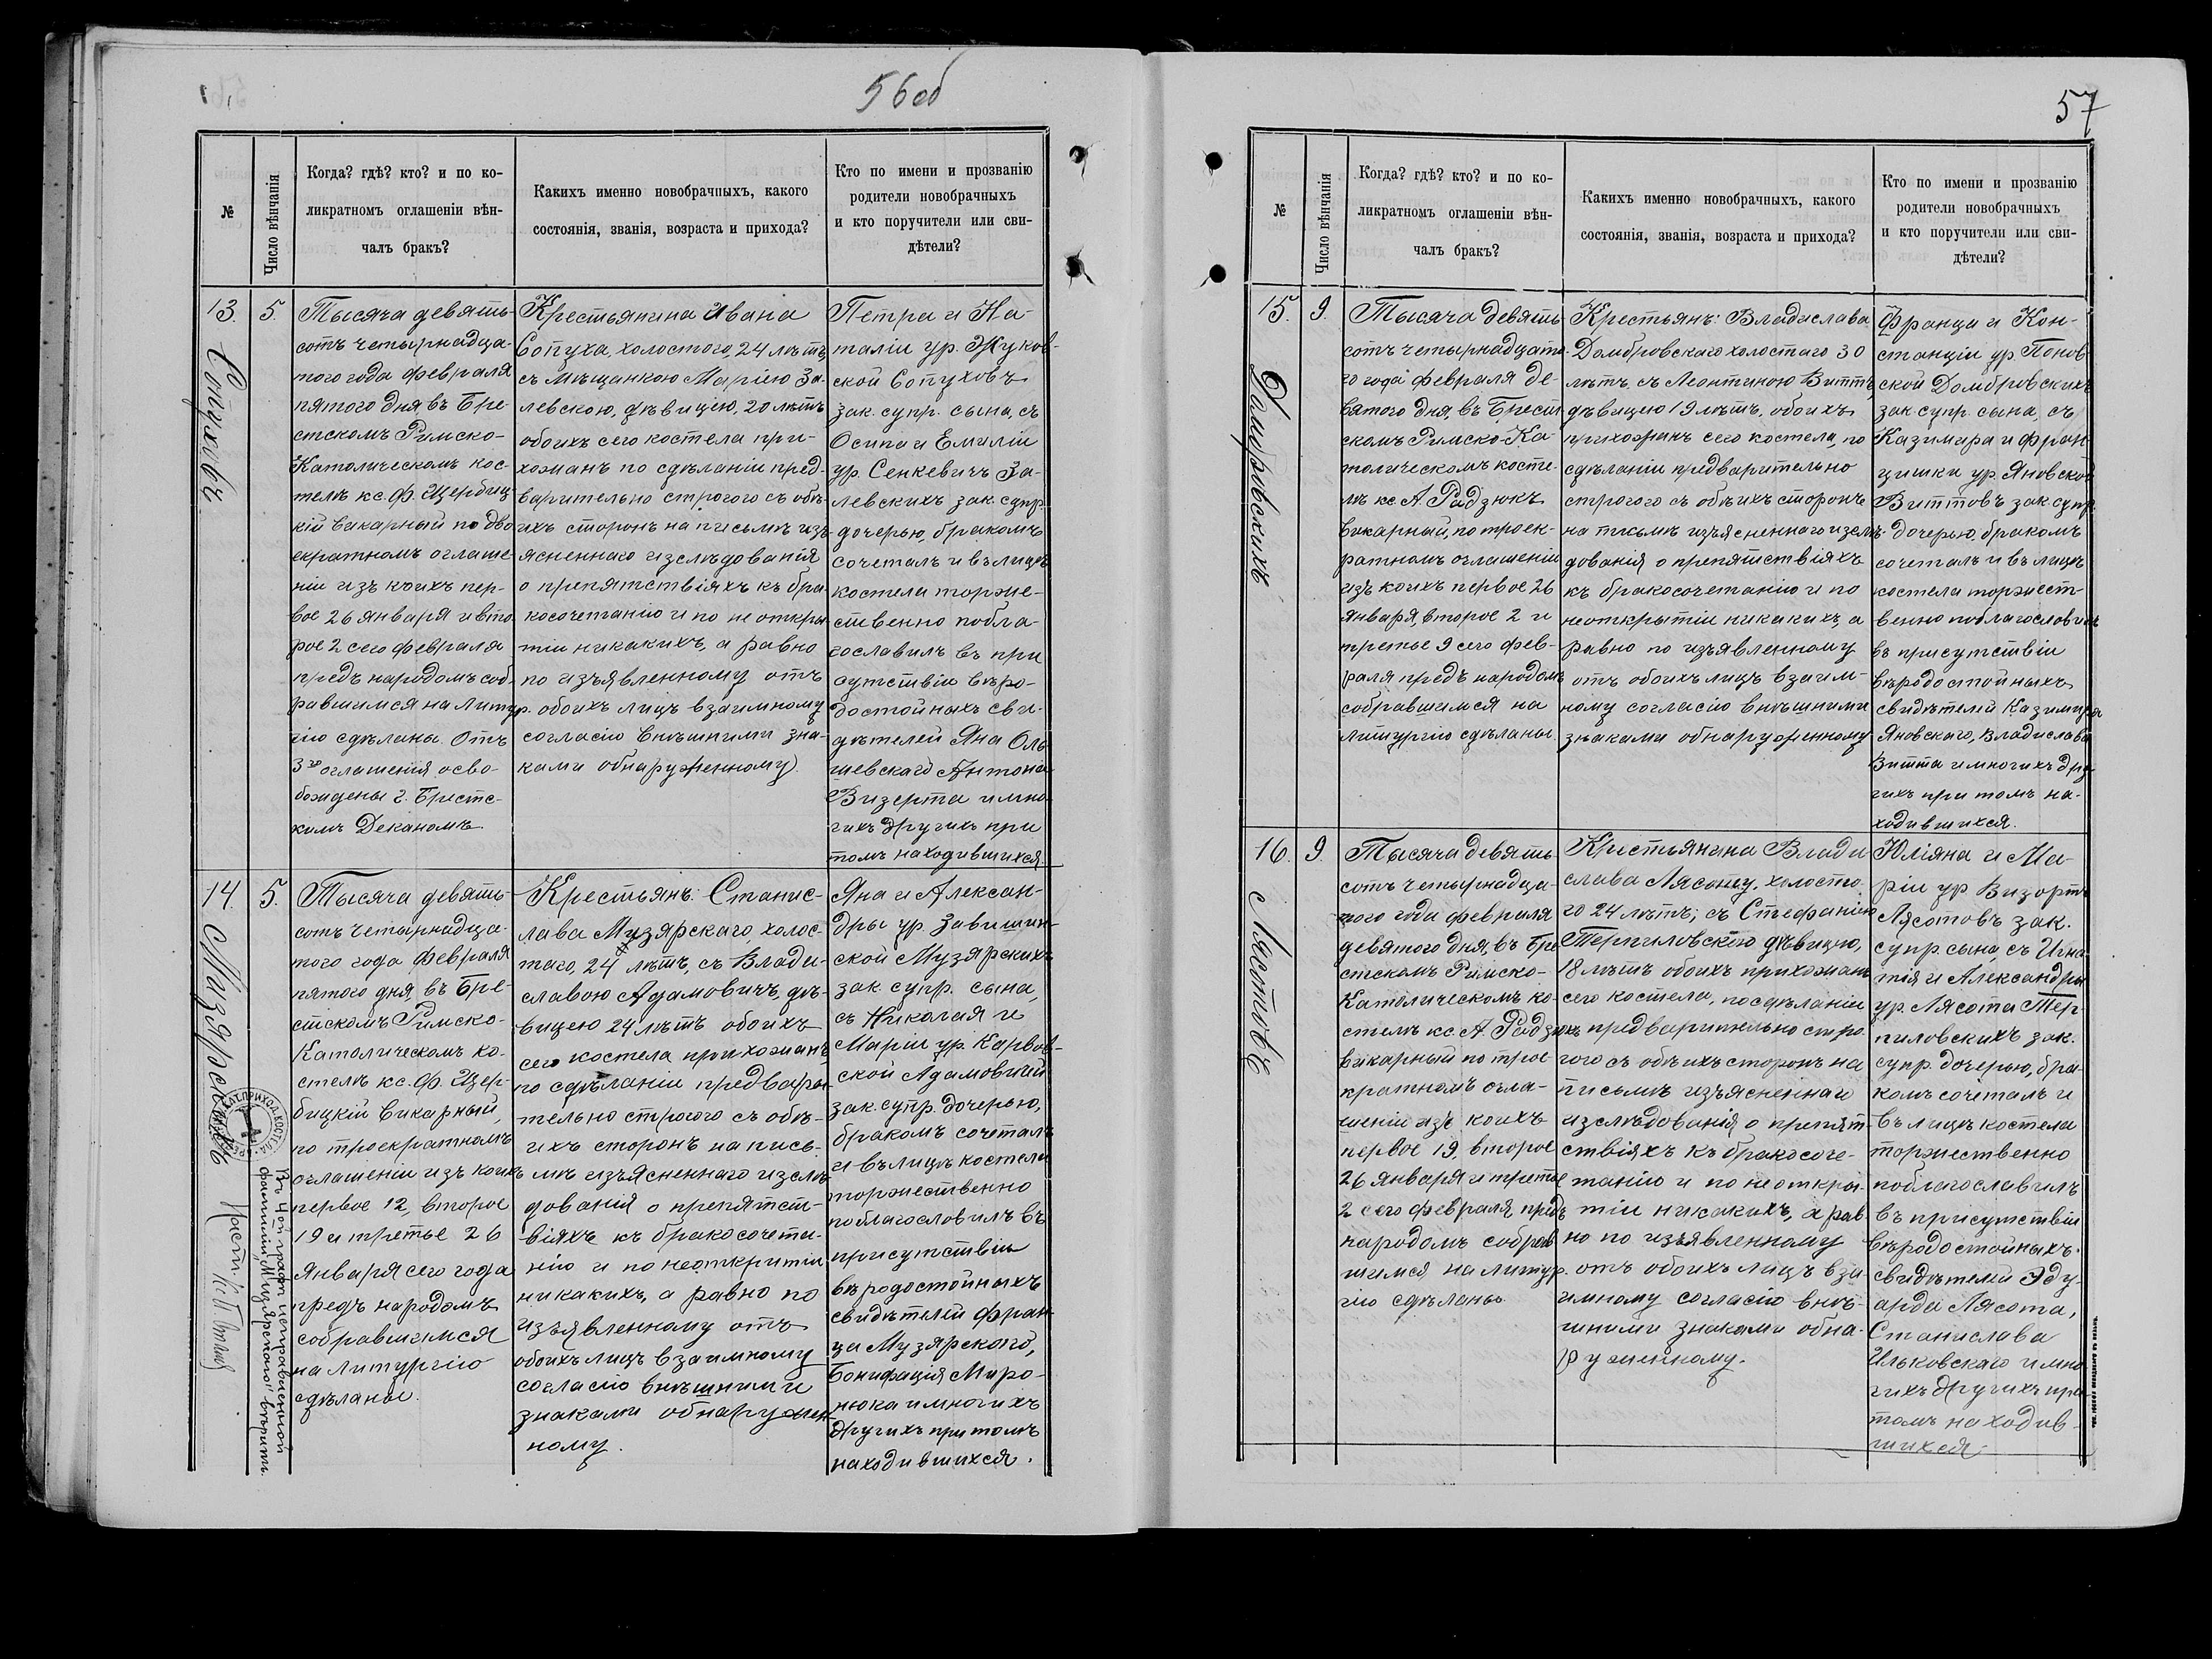 56об
№
Число вѣнчанія
Когда? гдѣ? кто? и по ко-
ликратномъ оглашеніи вѣн-
чалъ бракъ?
Какихъ именно новобрачныхъ, какого
состоянія, званія, возраста и прихода?
Кто по имени и прозванію
родители новобрачныхъ
и кто поручители или сви-
дѣтели?
13.
Сопуховъ
5.
Тысяча девять-
сотъ четырнадца-
того года февраля
пятого дня въ Бре-
стскомъ Римско-
Католическомъ кос-
телѣ кс. Ф. Щербиц-
кій викарный по дво-
екратномъ оглаше-
ніи изъ коихъ пер-
вое 26 января и вто-
рое 2 сего февраля
предъ народомъ соб-
равшимся на Литур-
гію сдѣланы. Отъ
3го оглашенія осво-
бождены г. Брестс-
кимъ Деканомъ.
Крестьянина Ивана
Сопуха, холостого, 24 лѣтъ
съ Мѣщанкою Маріею За-
левскою, дѣвицею, 20 лѣтъ
обоихъ сего костела при-
хожанъ по сдѣланіи пред-
варительно строгого съ обѣ-
ихъ сторонъ на письмѣ изъ-
ясненнаго изслѣдованія
о препятствіяхъ къ бра-
косочетанію и по не откры-
тіи никакихъ, а равно
по изъявленному отъ
обоихъ лицъ взаимному
согласію внѣшними зна-
ками обнаруженному.
Петра и На-
таліи ур. Жуков-
ской Сопуховъ
зак. супр. сына, съ
Осипа и Емиліи
ур. Сенкевичъ За-
левскихъ зак. супр.
дочерью, бракомъ
сочеталъ и въ лицѣ
костела торже-
ственно побла-
гославилъ въ при
сутствіи вѣро-
достойныхъ сви-
дѣтелей Яна Оль-
шевскаго Антона
Визерта и мно-
гихъ другихъ при
томъ находившихся.
14.
Музярскихъ
5.
Тысяча девять-
сотъ четырнадца-
того года февраля
пятого дня, въ Бре-
стскомъ Римско-
Католическомъ ко-
стелѣ кс. Ф. Щер-
бицкій викарный,
по троекратномъ
оглашеніи изъ коихъ
первое 12, второе
19 и третье 26
Января сего года
предъ народомъ
собравшимся
на Литургію
сдѣланы.
Крестьянъ: Станис-
лава Музярскаго, холос-
таго, 24 лѣтъ, съ Влади-
славою Адамовичъ, дѣ-
вицею 24 лѣтъ обоихъ
сего костела прихожанъ
по сдѣланіи предвари-
тельно строгого съ обѣ-
ихъ сторонъ на пись-
мѣ изъясненнаго изслѣ-
дованія о препятст-
віяхъ къ бракосочета-
нію и по неоткрытіи
никакихъ, а равно по
изъявленному отъ
обоихъ лицъ взаимному
согласію внѣшними
знаками обнаружен-
ному.
Яна и Алексан-
дры ур. Завишин-
ской Музярскихъ
зак. супр. сына,
съ Николая и
Маріи ур. Карвов-
ской Адамовичей
зак. супр. дочерью,
бракомъ сочеталъ
и въ лицѣ костела
торжественно
поблагословилъ въ
присутствіи
вѣродостойныхъ
свидѣтелей Фран-
ца Музярского,
Бонифація Миро-
нюка и многихъ
другихъ при томъ
находившихся.
Въ 4ой графѣ исправленной
фамиліи „Музярскаго" вѣрить.
57
№
Число вѣнчанія
Когда? гдѣ? кто? и по ко-
ликратномъ оглашеніи вѣн-
чалъ бракъ?
Какихъ именно новобрачныхъ, какого
состоянія, званія, возраста и прихода?
Кто по имени и прозванію
родители новобрачныхъ
и кто поручители или сви-
дѣтели?
15.
Домбровскихъ
9.
Тысяча девять-
сотъ четырнадцато-
го года февраля де-
вятого дня, въ Брест-
скомъ Римско-Ка-
толическомъ косте-
лѣ кс. А. Радзюкъ
викарный, по троек-
ратномъ оглашеніи
изъ коихъ первое 26
января, второе 2 и
третье 9 сего фев-
раля предъ народомъ
собравшимся на
литургію сдѣланы.
Крестьянъ: Владислава
Домбровскаго холостаго 30
лѣтъ, съ Леонтиною Виттъ,
дѣвицею 19 лѣтъ, обоихъ
прихожанъ сего костела, по
сдѣланіи предварительно
строгого съ обѣихъ сторонъ
на письмѣ изъясненнаго изслѣ-
дованія о препятствіяхъ
къ бракосочетанію и по
неоткрытіи никакихъ, а
равно по изъявленному
отъ обоихъ лицъ взаим-
ному согласію внѣшними
знаками обнаруженному
Франца и Кон-
станціи ур. Понов-
ской Домбровскихъ
зак. супр. сына, съ
Казимира и Фран-
цишки ур. Яновской
Виттовъ зак. супр.
дочерью, бракомъ
сочеталъ и въ лицѣ
костела торжест-
венно поблагословилъ
въ присутствіи
вѣродостойныхъ
свидѣтелей Казимира
Яновскаго, Владислава
Витта и многихъ дру-
гихъ при томъ на-
ходившихся.
16.
Лясотовъ
9.
Тысяча девять-
сотъ четырнадца-
того года февраля
девятого дня, въ Бре-
стскомъ Римско-
Католическомъ ко-
стелѣ кс. А. Радзюкъ
викарный по трое-
кратномъ огла-
шеніи изъ коихъ
первое 19, второе
26 января и третье
2 сего февраля предъ
народомъ собрав-
шимся на литур-
гію сдѣланы.
Крестьянина Влади-
слава Лясоту, холосто-
го 24 лѣтъ, съ Стефаніею
Терпиловскою дѣвицею,
18 лѣтъ обоихъ прихожанъ
сего костела, по сдѣланіи
предварительно стро-
гого съ обѣихъ сторонъ на
письмѣ изъясненнаго
изслѣдованія о препят-
ствіяхъ къ бракосоче-
танію и по неоткры-
тіи никакихъ, а рав-
но по изъявленному
отъ обоихъ лицъ вза-
имному согласію внѣ-
шними знаками обна-
руженному.
Юліяна и Ма-
ріи ур Визортъ
Лясотовъ зак.
супр. сына, съ Игна-
тія и Александры
ур. Лясота Тер-
пиловскихъ зак.
супр. дочерью, бра-
комъ сочеталъ и
въ лицѣ костела
торжественно
поблагославилъ
въ присутствіи
вѣродостойныхъ
свидѣтелей Эду-
арда Лясота,
Станислава
Ильковскаго и мно-
гихъ другихъ при
томъ находив-
шихся.